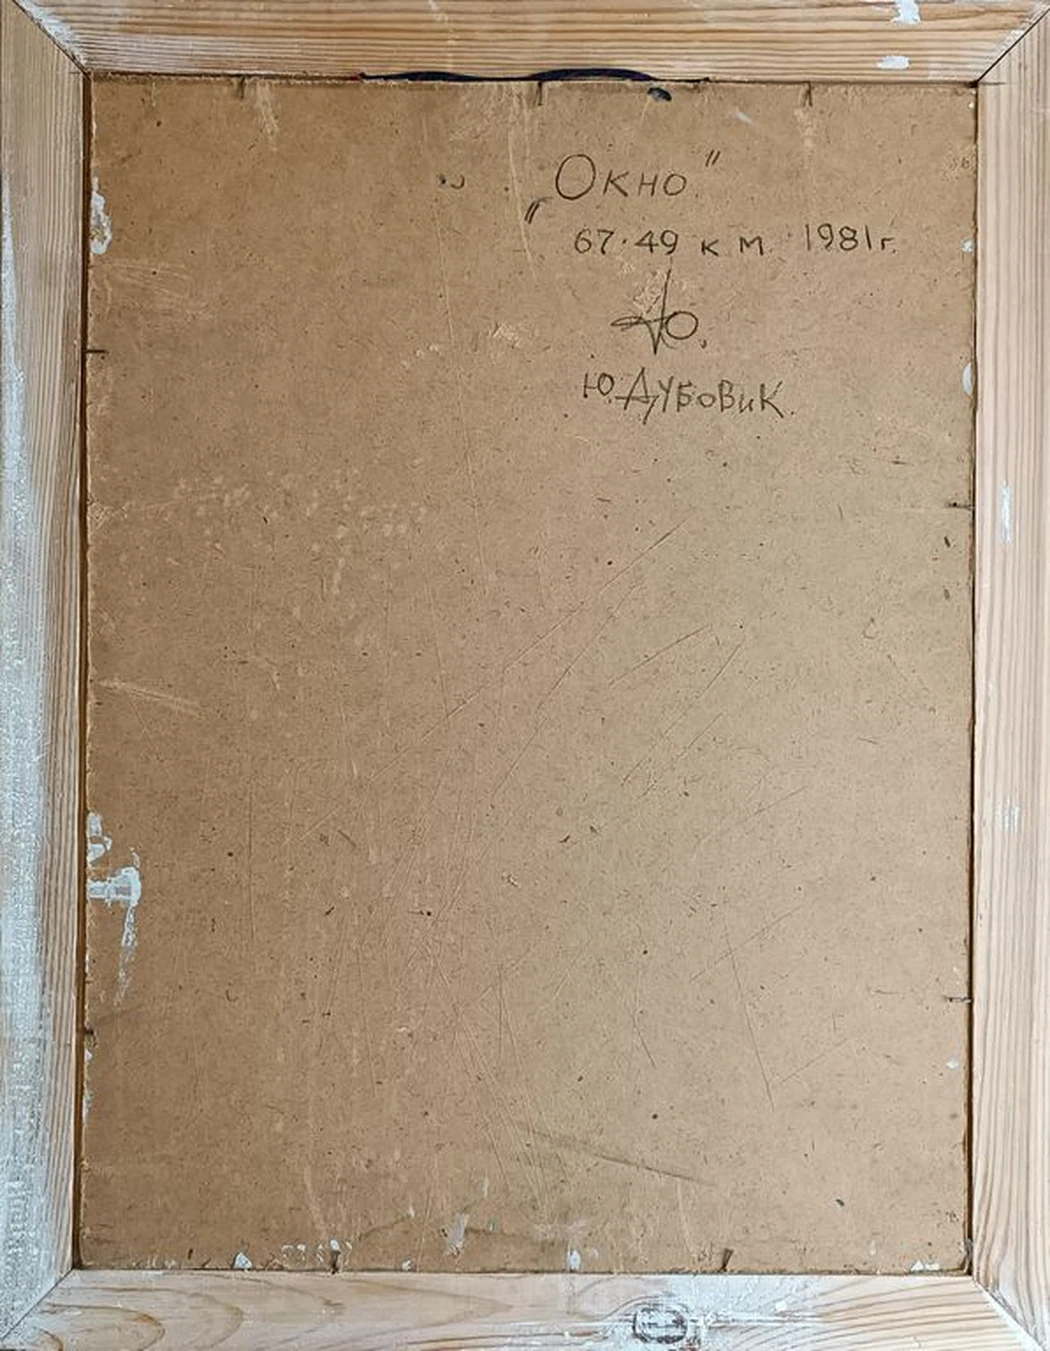 „Окно"
67·49 к м 1981г.
Ю.
Ю. Дубовик